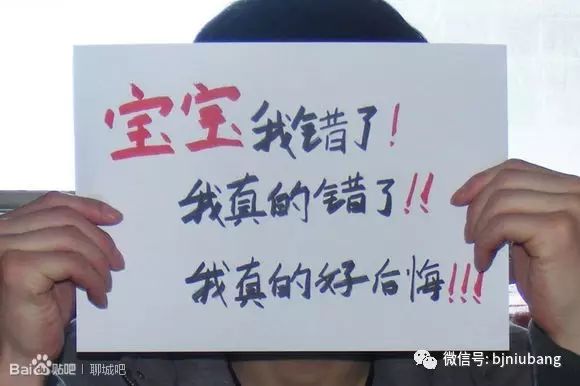 宝宝我错了!
我真的错了!!
我真的好后悔!!!
Bai贴吧 | 聊城吧
微信号: bjniubang